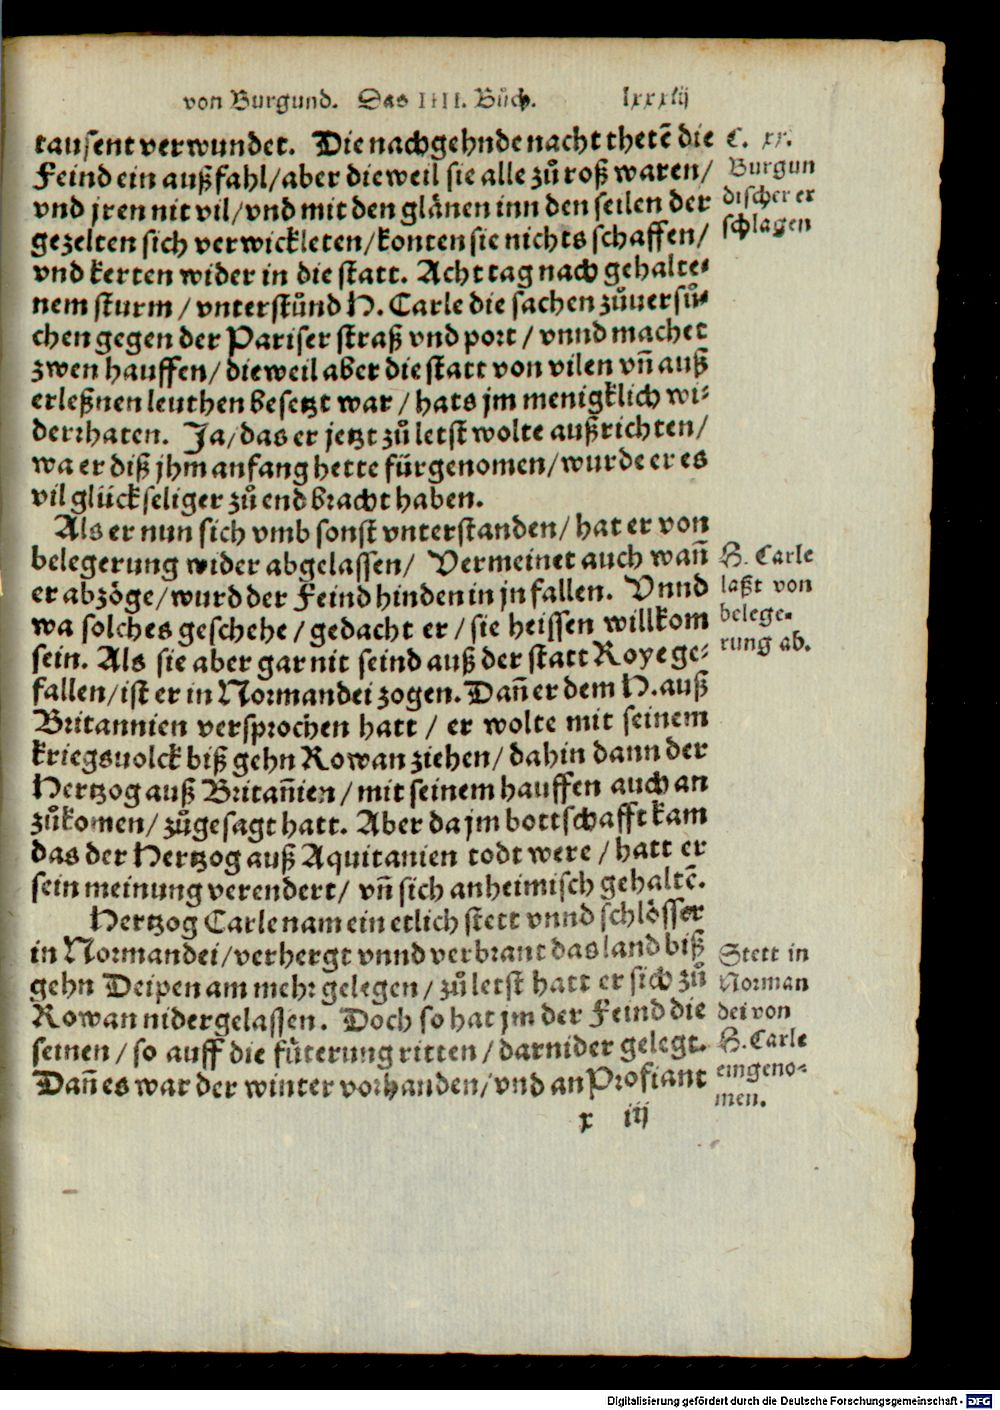 von Burgund. Das IIII. Bůch. lxxxiij
tausent verwundet. Die nachgehnde nacht thetẽ die
Feind ein außfahl/aber dieweil sie alle zů roß waren/
vnd jren nit vil/vnd mit den glänen inn den seilen der
gezelten sich verwickleten/konten sie nichts schaffen/
vnd kerten wider in die statt. Acht tag nach gehalte⸗
nem sturm/vnterstůnd H. Carle die sachen zůuersů⸗
chen gegen der Pariser straß vnd port/vnnd machet
zwen hauffen/dieweil aber die statt von vilen vñ auß
erleßnen leuthen besetzt war/hats jm menigklich wi⸗
derꝛhaten. Ja/das er jetzt zů letst wolte außrichten/
wa er diß jhm anfang hette fürgenomen/wurde er es
vil glückseliger zů end bracht haben.
Als er nun sich vmb sonst vnterstanden/hat er von
belegerung wider abgelassen/ Vermeinet auch wañ
er abzöge/wurd der Feind hinden in jn fallen. Vnnd
wa solches geschehe/gedacht er/sie heissen willkom
sein. Als sie aber gar nit seind auß der statt Roye ge⸗
fallen/ist er in Normandei zogen. Dañ er dem H. auß
Britannien versprochen hatt/er wolte mit seinem
kriegsuolck biß gehn Rowan ziehen/dahin dann der
Hertzog auß Britañien/mit seinem hauffen auch an
zůkomen/zůgesagt hatt. Aber da jm bottschafft kam
das der Hertzog auß Aquitanien todt were/hatt er
sein meinung verendert/vñ sich anheimisch gehaltẽ.
Hertzog Carle nam ein etlich stett vnnd schlösser
in Normandei/verhergt vnnd verbrant das land biß
gehn Deipen am mehꝛ gelegen/zů letst hatt er sich zů
Rowan nidergelassen. Doch so hat jm der Feind die
seinen/so auff die fůterung ritten/darnider gelegt.
Dañ es war der winter vorhanden/vnd an Profiant
x iij
C. xx.
Burgun
discher er
schlagen
H. Carle
laßt von
belege⸗
rung ab.
Stett in
Norman
dei von
H. Carle
eingeno⸗
men.
Digitalisierung gefördert durch die Deutsche Forschungsgemeinschaft - DFG